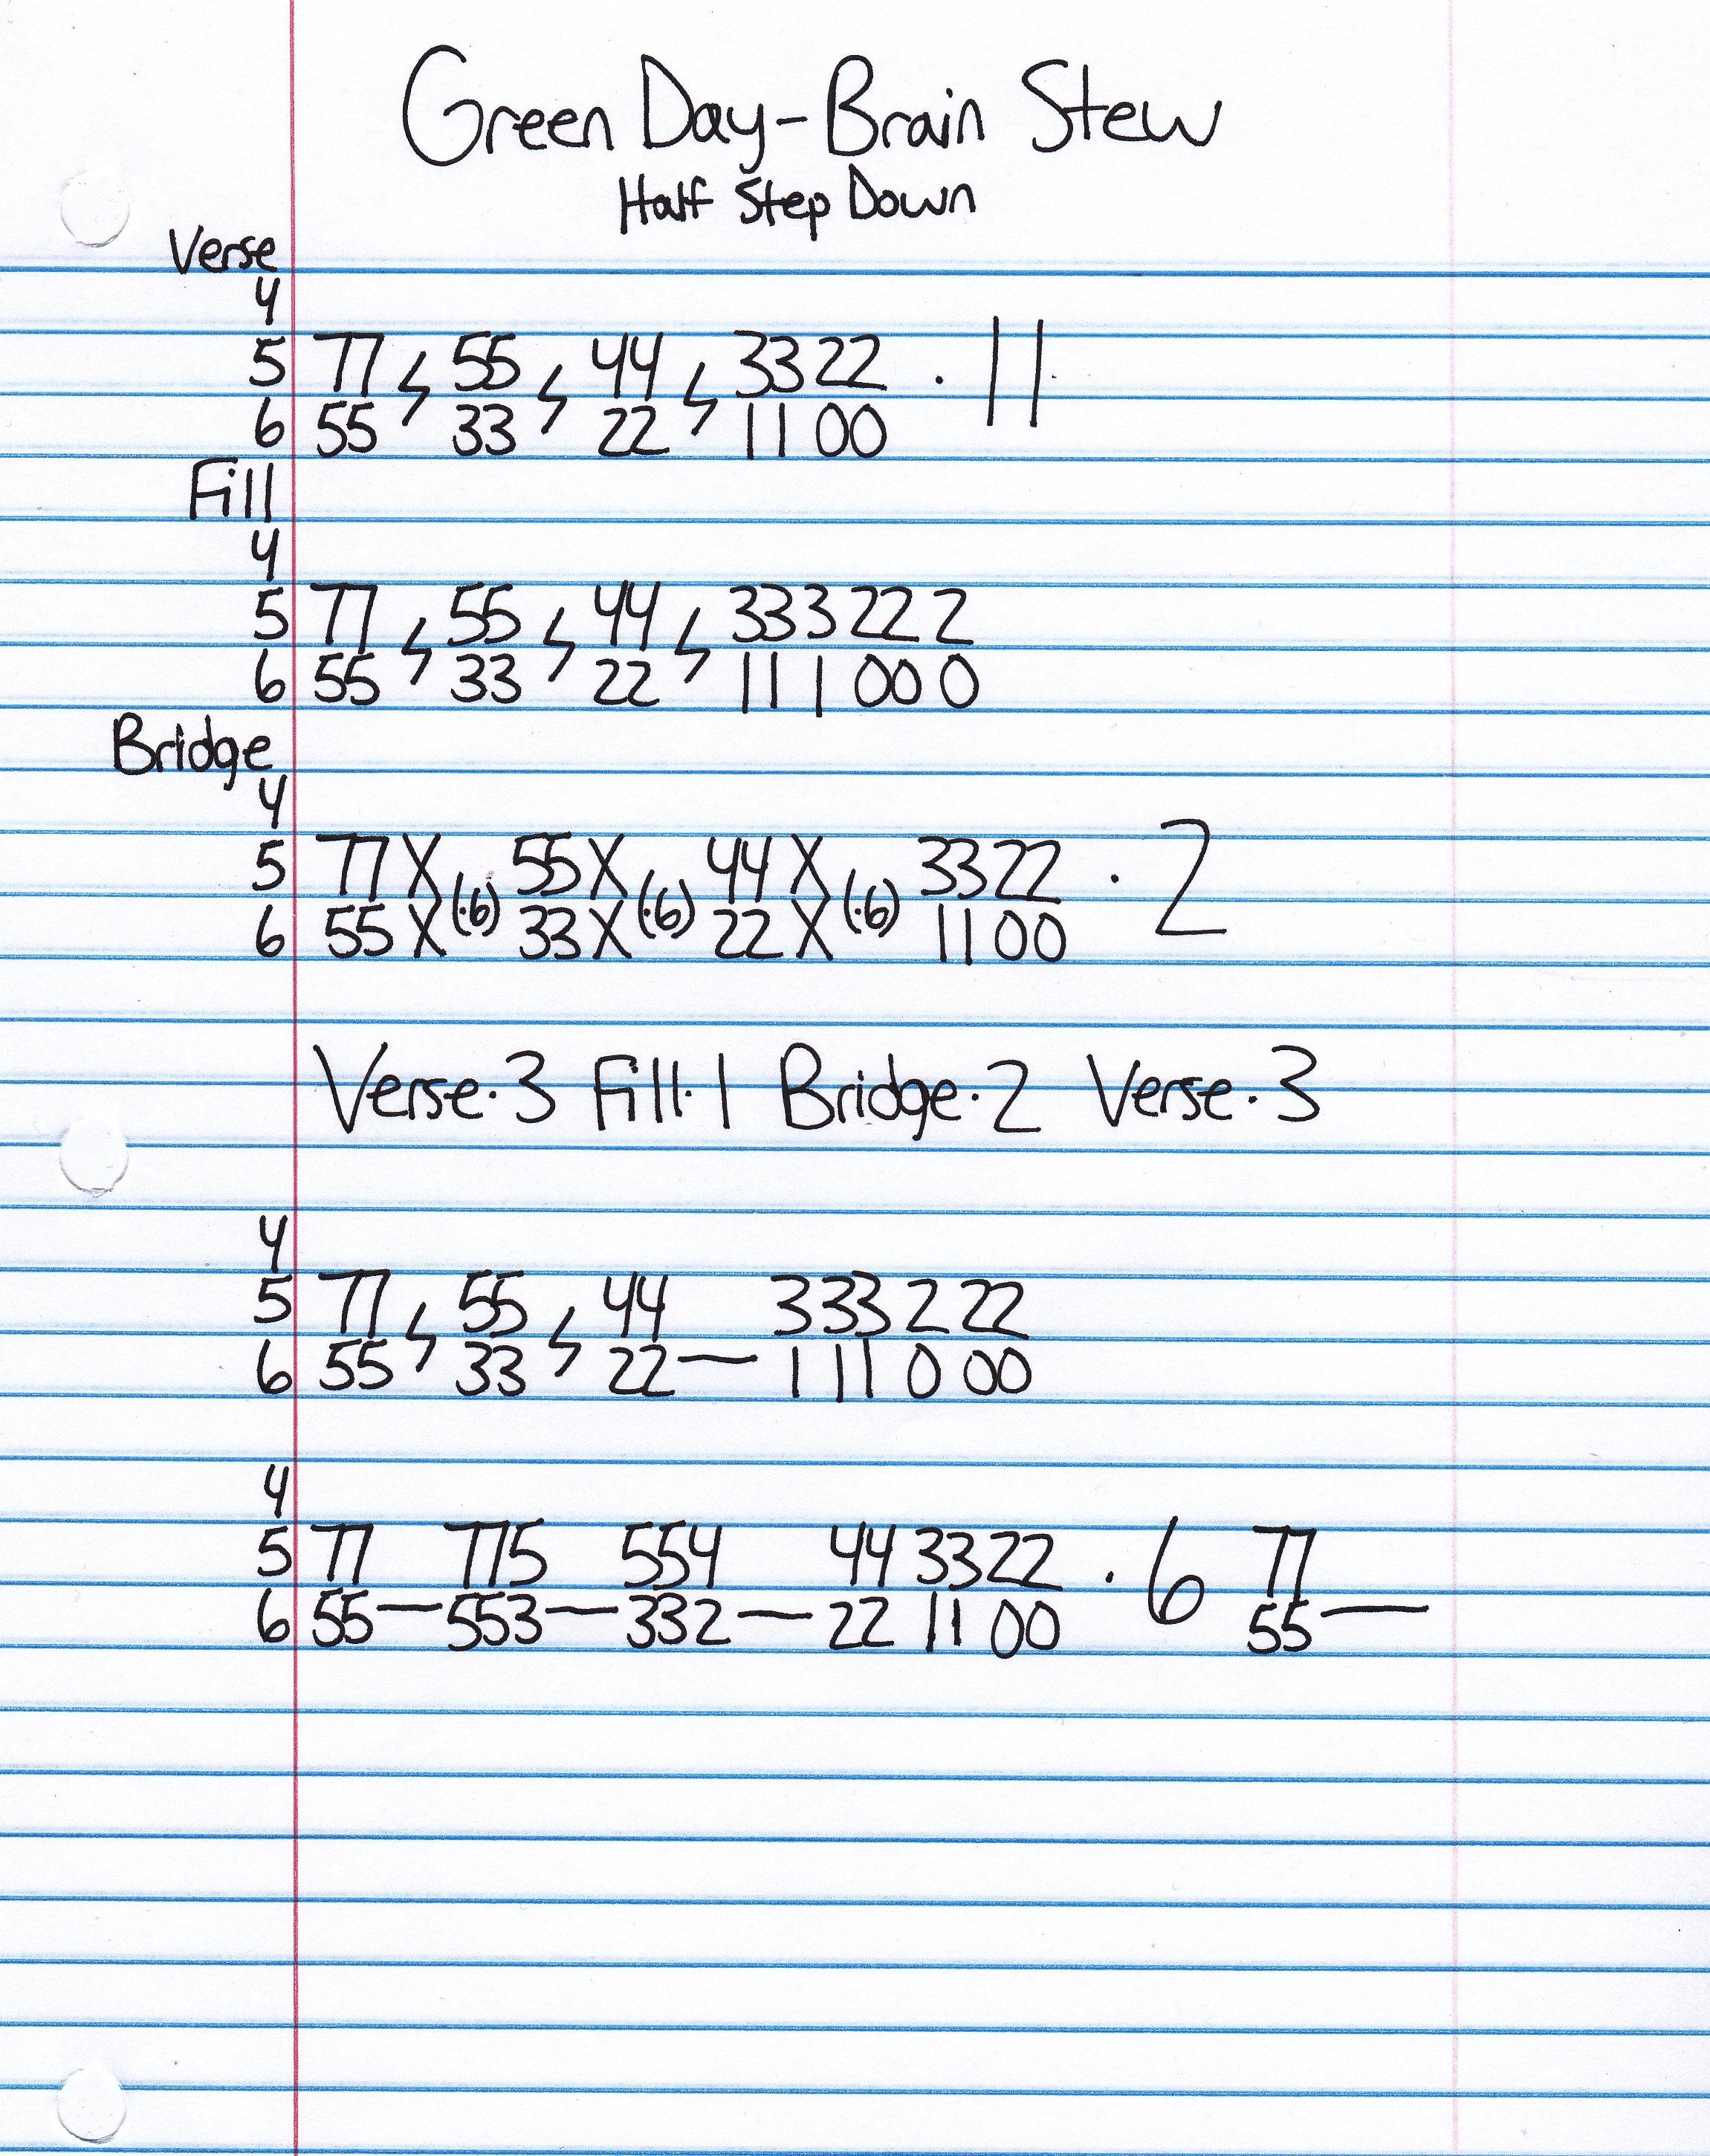 Green Day-Brain Stew
Half Step Down
Verse
4
5 77 𝄽 55 𝄽 44 𝄽 33 22 · 11
6 55 33 22 11 00
Fill
4
5 77 𝄽 55 𝄽 44 𝄽 333 22 2
6 55 33 22 11 1 00 0
Bridge
4
5 77X (·6) 55X (·6) 44X (·6) 33 22 · 2
6 55X 33X 22X 11 00
Verse·3 Fill·1 Bridge·2 Verse·3
4
5 77 𝄽 55 𝄽 44 333 2 22
6 55 33 22— 1 11 0 00
4
5 77 775 554 44 33 22 · 6 77
6 55—553—332—22 11 00 55—